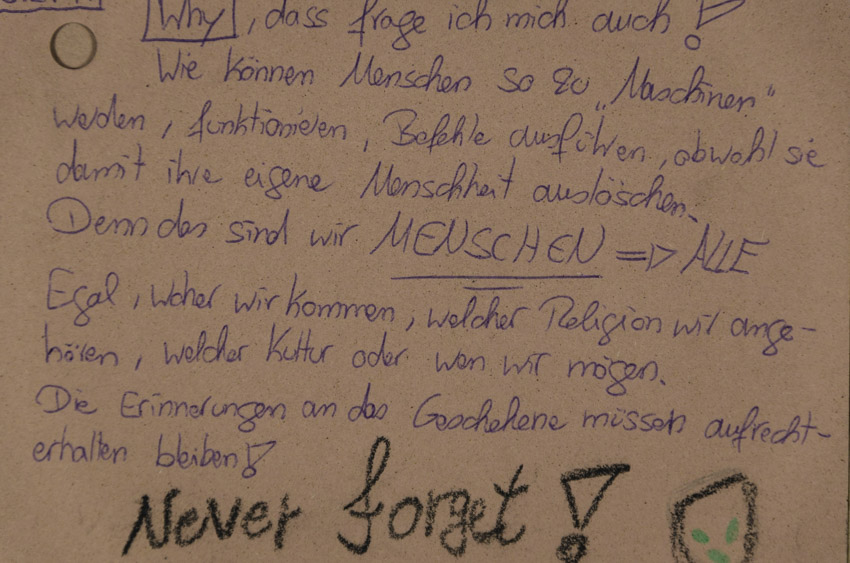 Why, dass frage ich mich auch!
Wie können Menschen so zu „Maschinen“
werden, funktionieren, Befehle ausführen, obwohl sie
damit ihre eigene Menschheit auslöschen.
Denn das sind wir MENSCHEN => ALLE
Egal, woher wir kommen, welcher Religion wir ange-
hören, welcher Kultur oder wen wir mögen.
Die Erinnerungen an das Geschehene müssen aufrecht-
erhalten bleiben!
Never forget!